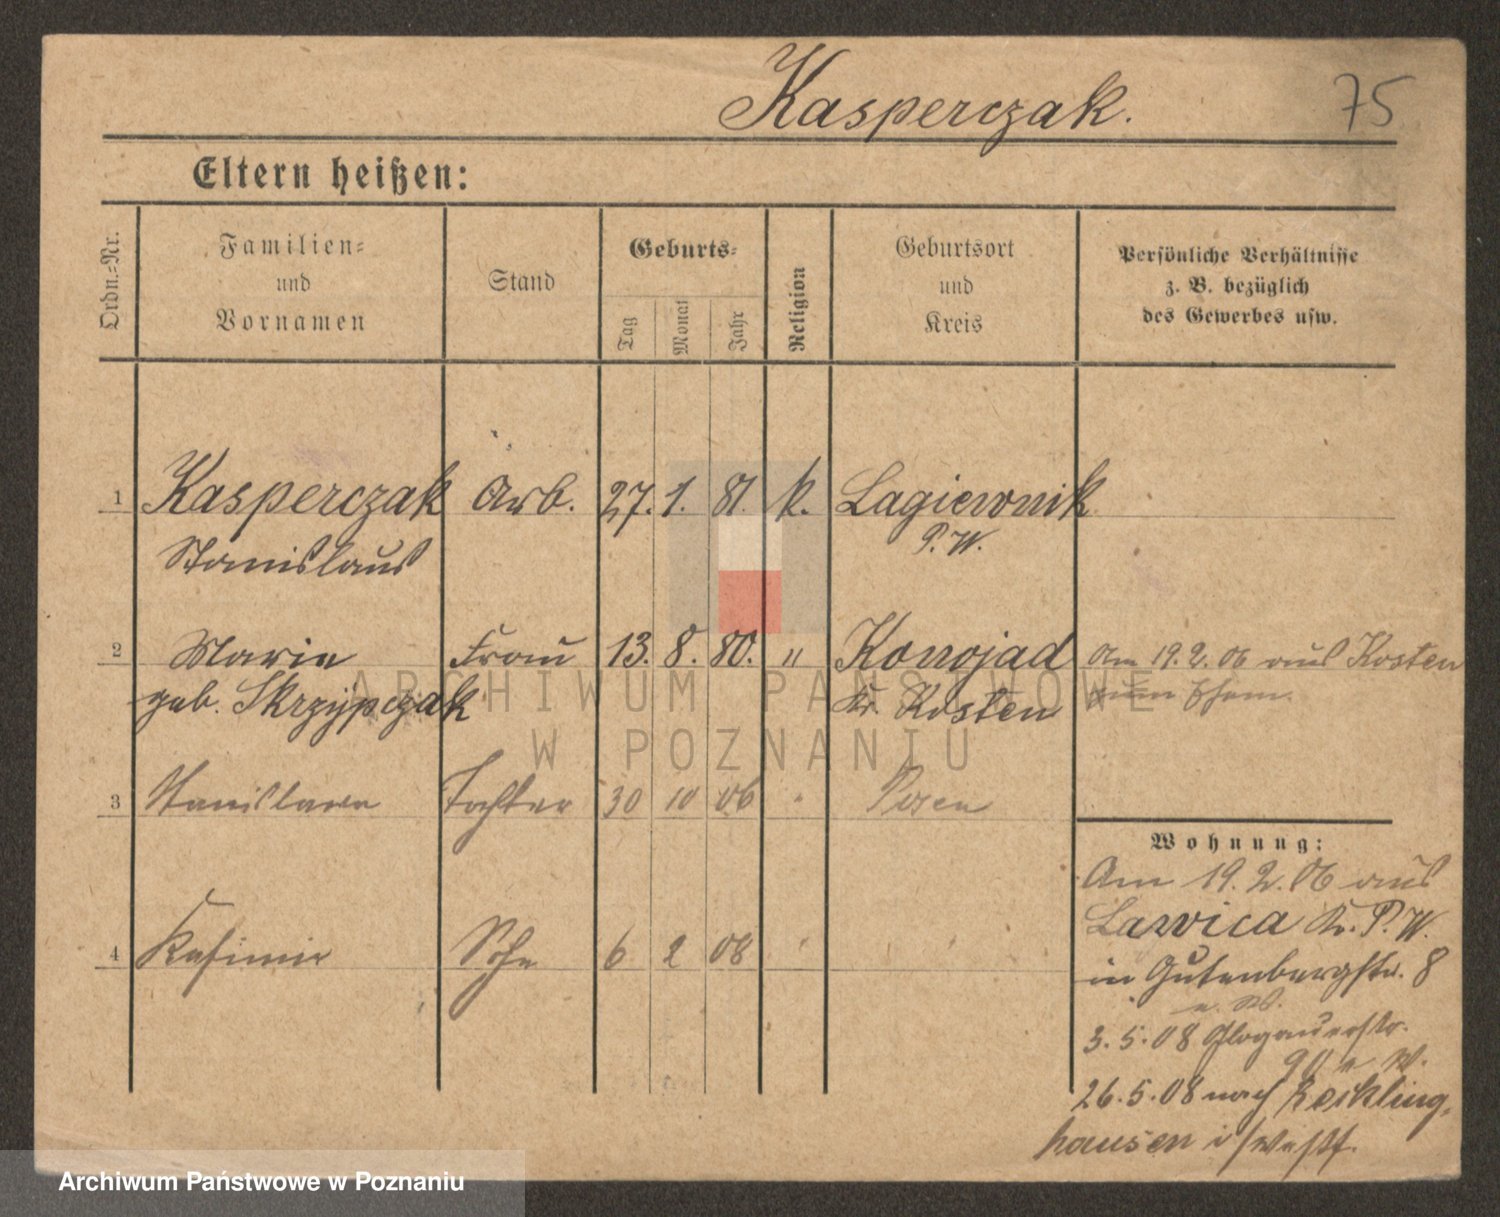 Kasperczak.
75
Eltern heißen:
Ordn.=Nr.
Familien=
und
Vornamen
Stand
Geburts=
Tag
Monat
Jahr
Religion
Geburtsort
und
Kreis
Persönliche Verhältnisse
z. B. bezüglich
des Gewerbes usw.
1 Kasperczak Arb. 27. 1. 81. k. Lagiewnik
Stanislaus P. W.
2 Marie Frau 13. 8. 80. " Konojad Am 19. 2. 06 aus Kosten
geb. Skrzypczak Kr. Kosten zum Ehem.
3 Stanislawa Tochter 30 10 06 " Posen
4 Kasimir Sohn 6 2 08 "
Wohnung:
Am 19. 2. 06 aus
Lawica Kr. P. W.
in Gutenbergstr. 8
e. W.
3. 5. 08 Glogauerstr.
90 e W.
26. 5. 08 nach Reckling-
hausen i/Westf.
ARCHIWUM PAŃSTWOWE
W POZNANIU
Archiwum Państwowe w Poznaniu